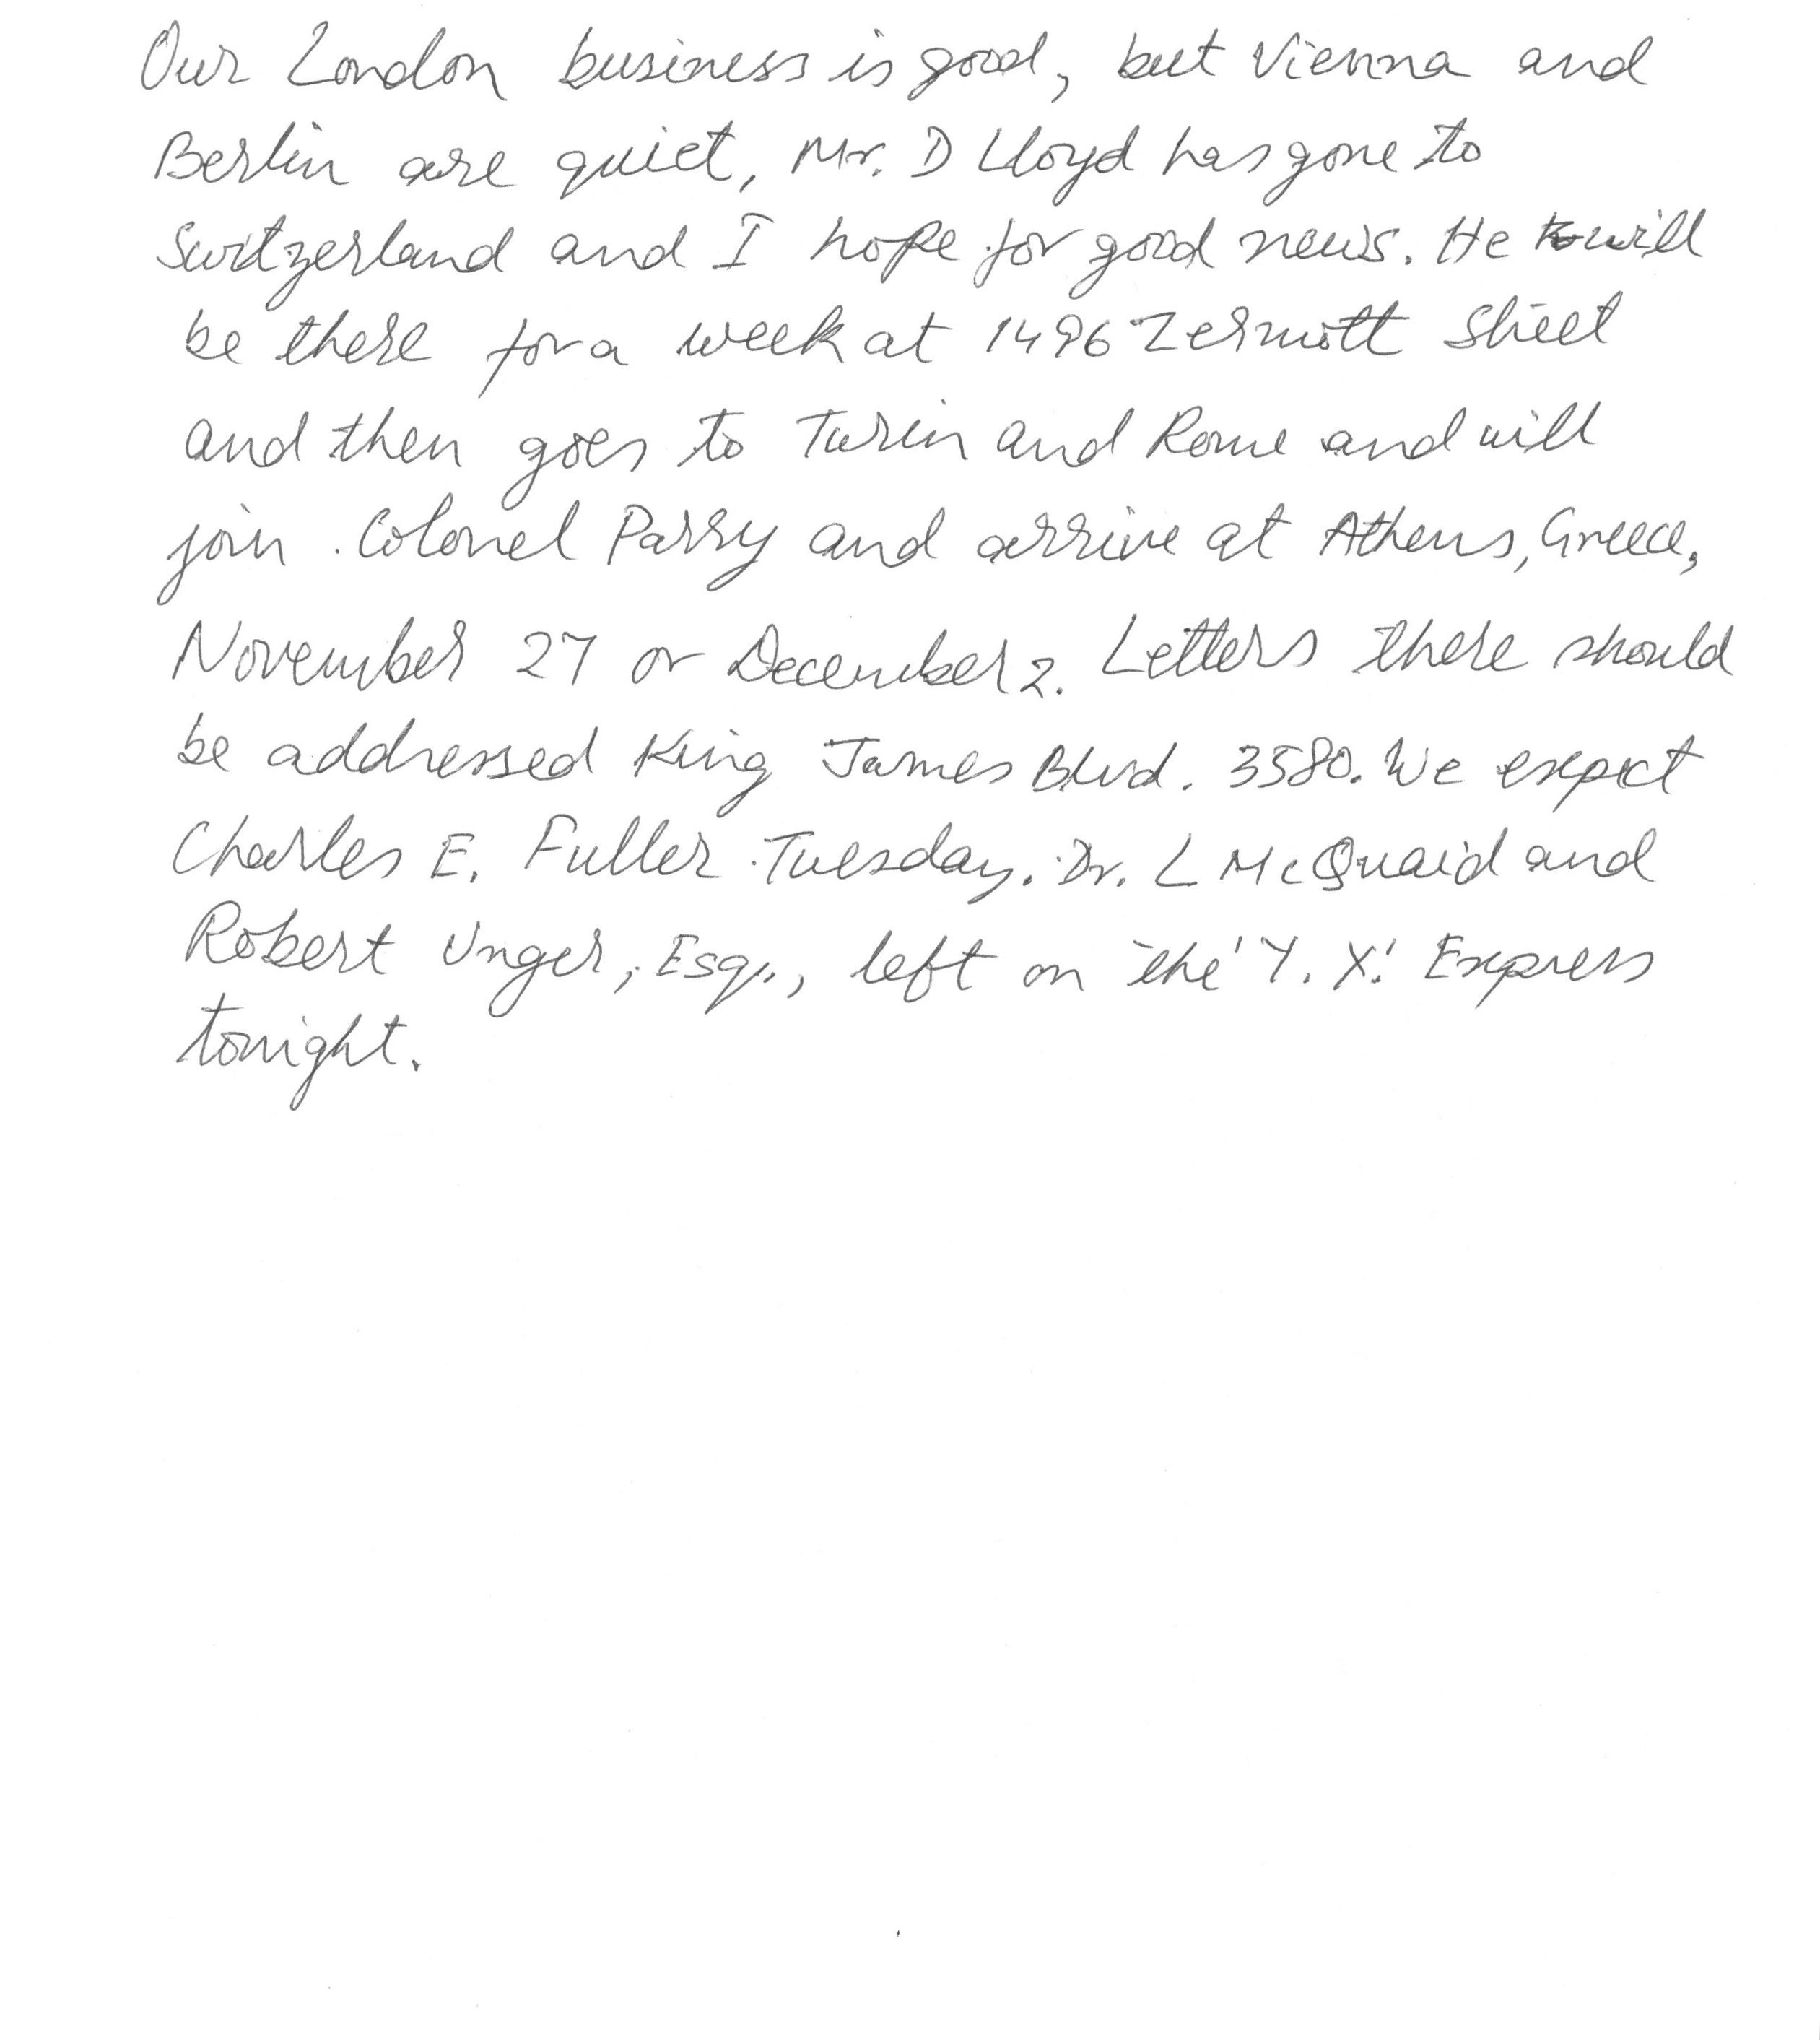 Our London business is good, but Vienna and
Berlin are quiet, Mr. D Lloyd has gone to
Switzerland and I hope for good news. He will
be there for a week at 1496 Zermott Street
and then goes to Turin and Rome and will
join Colonel Parry and arrive at Athens, Greece,
November 27 or December 2. Letters there should
be addressed King James Blvd. 3580. We expect
Charles E. Fuller Tuesday. Dr. L McQuaid and
Robert Unger, Esq., left on the 'Y. X.' Express
tonight.